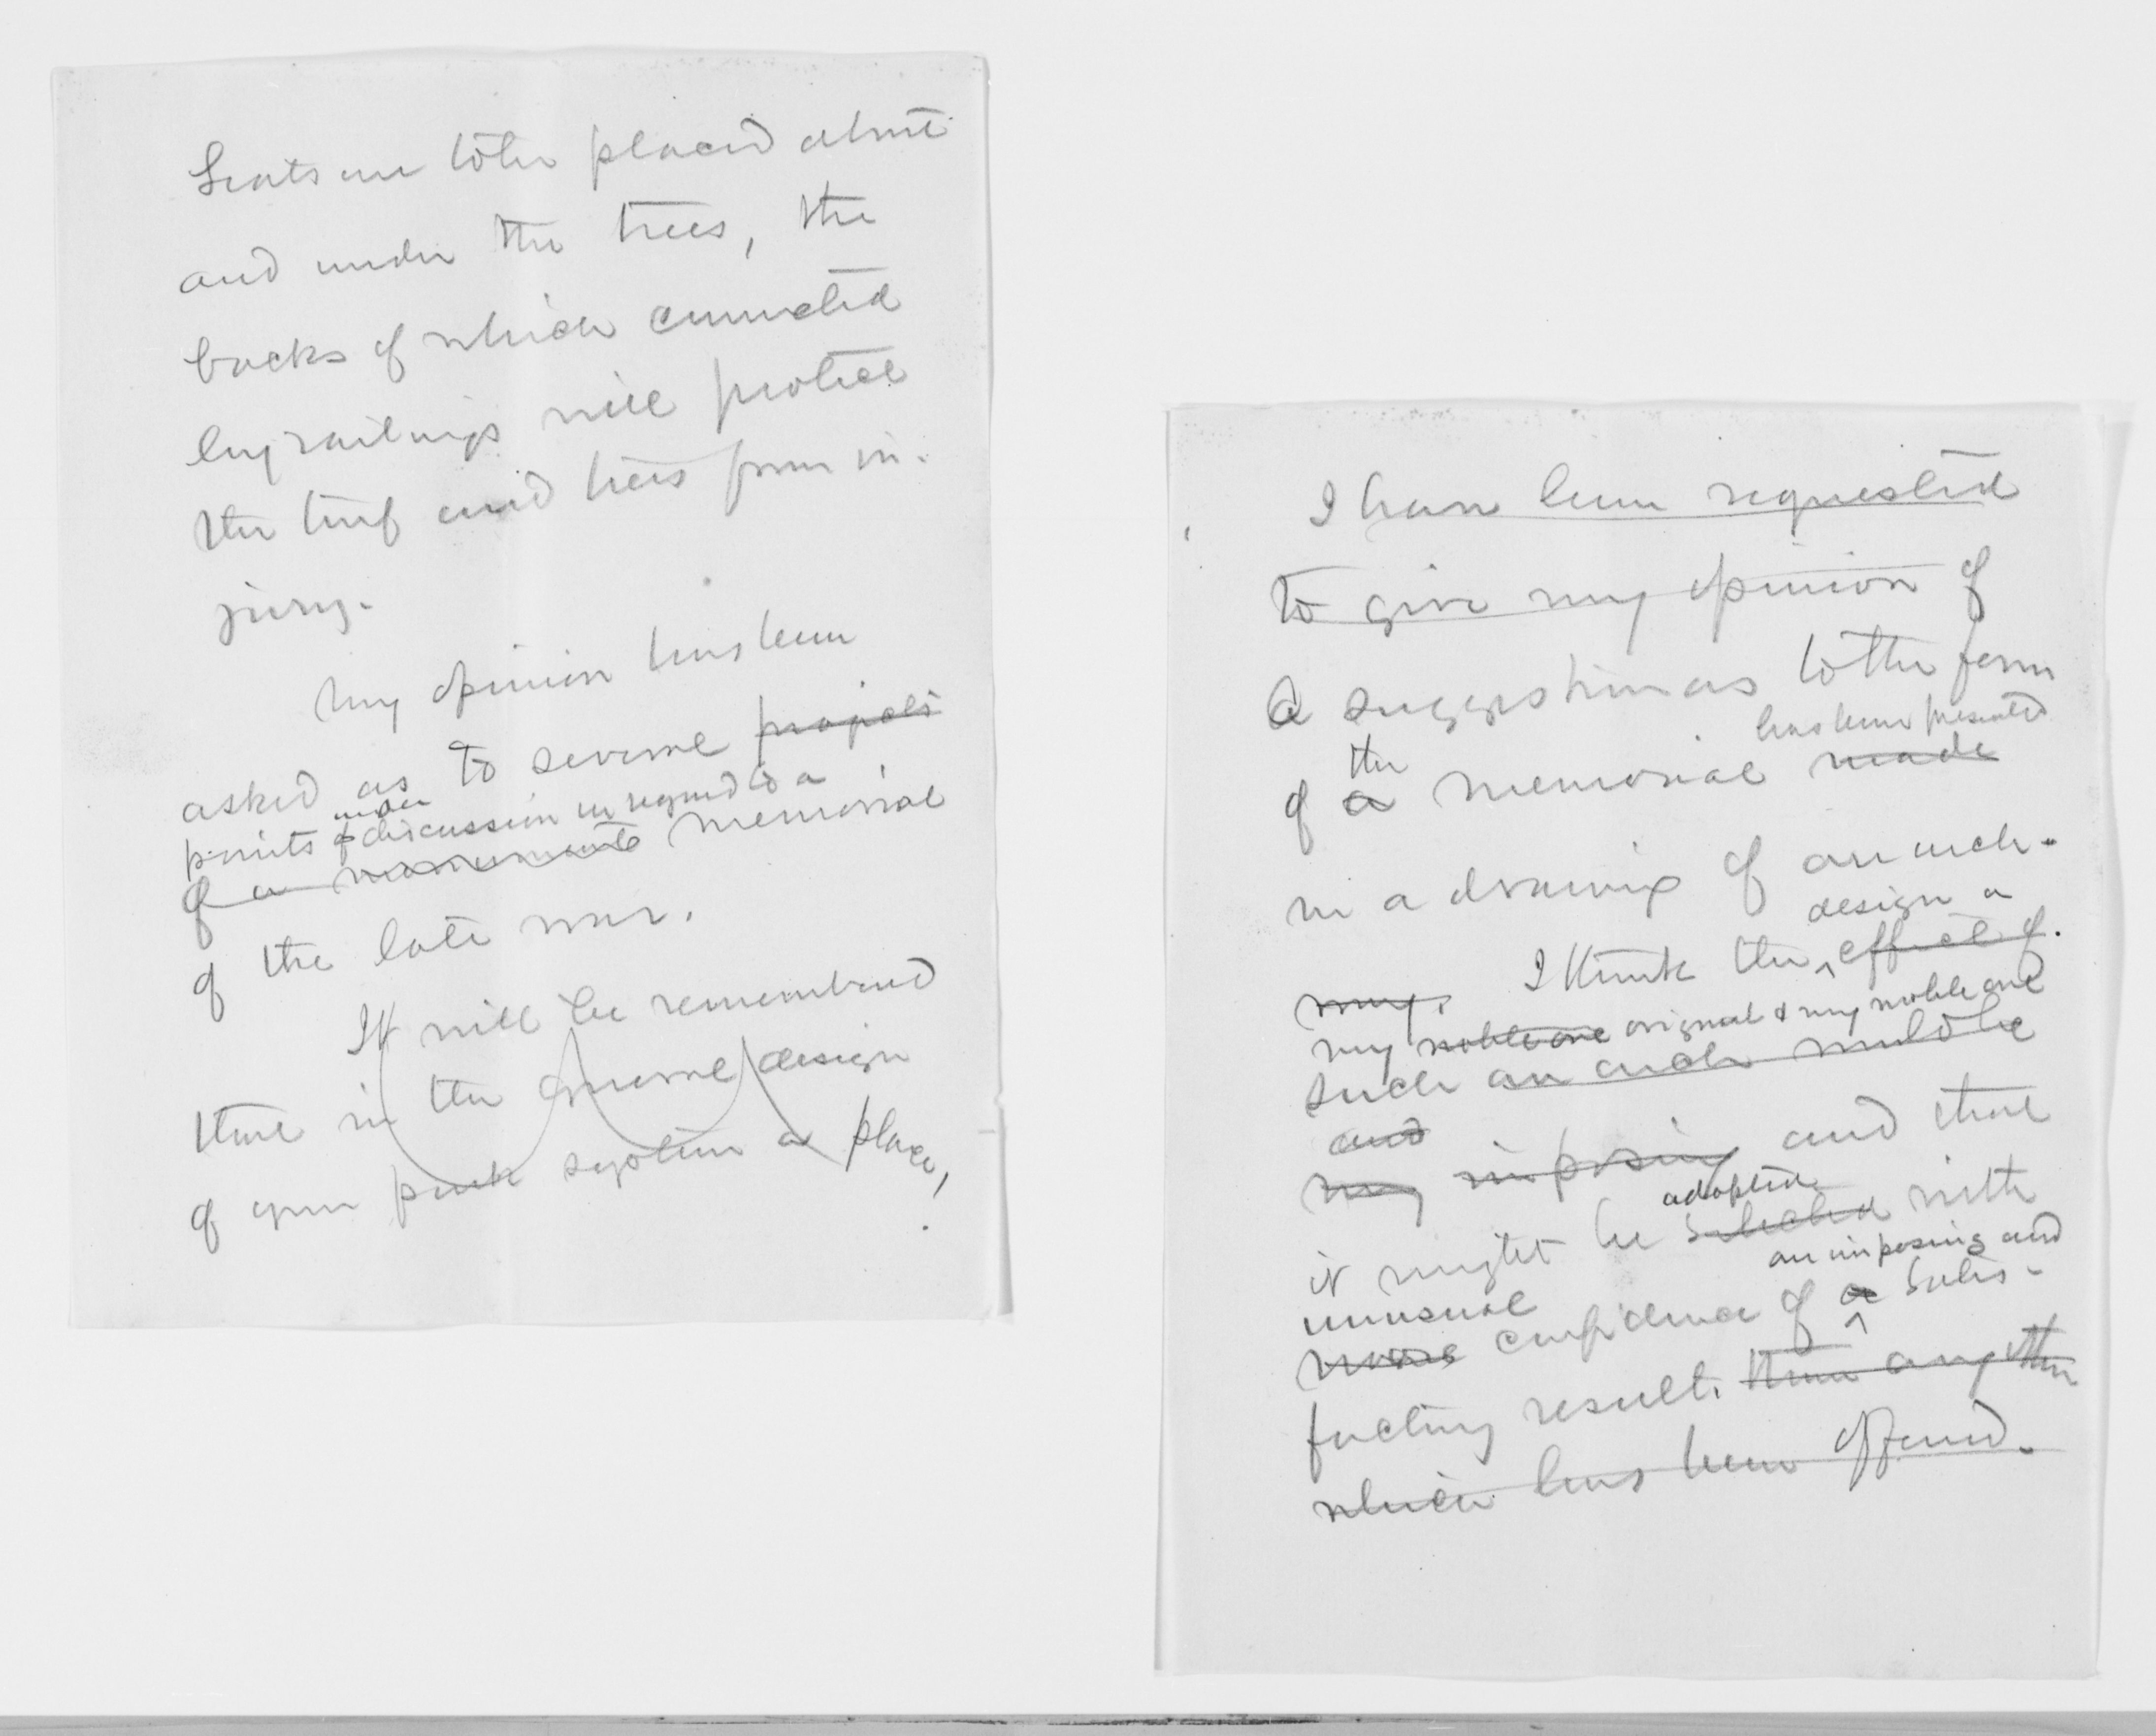 Seats are to be placed about
and under the trees, the
backs of which connected
by railings will protect
the turf and trees from in-
jury.
My opinion has been
asked as to several projects
under
points of discussion in regard to a
of a monumento memorial
of the late war.
It will be remembered
that in the general design
of your park system a place,
I have been requested
to give my opinion of
A suggestion as to the form
has been presented
the
of a memorial made
in a drawing of an arch.
design a
may. I think the effect of
very noble one original & very noble one
such an arch would be
and
very imposing and that
adopted
it might be selected with
an imposing and
unusual
more confidence of a satis-
factory result. than any other
which has been offered.